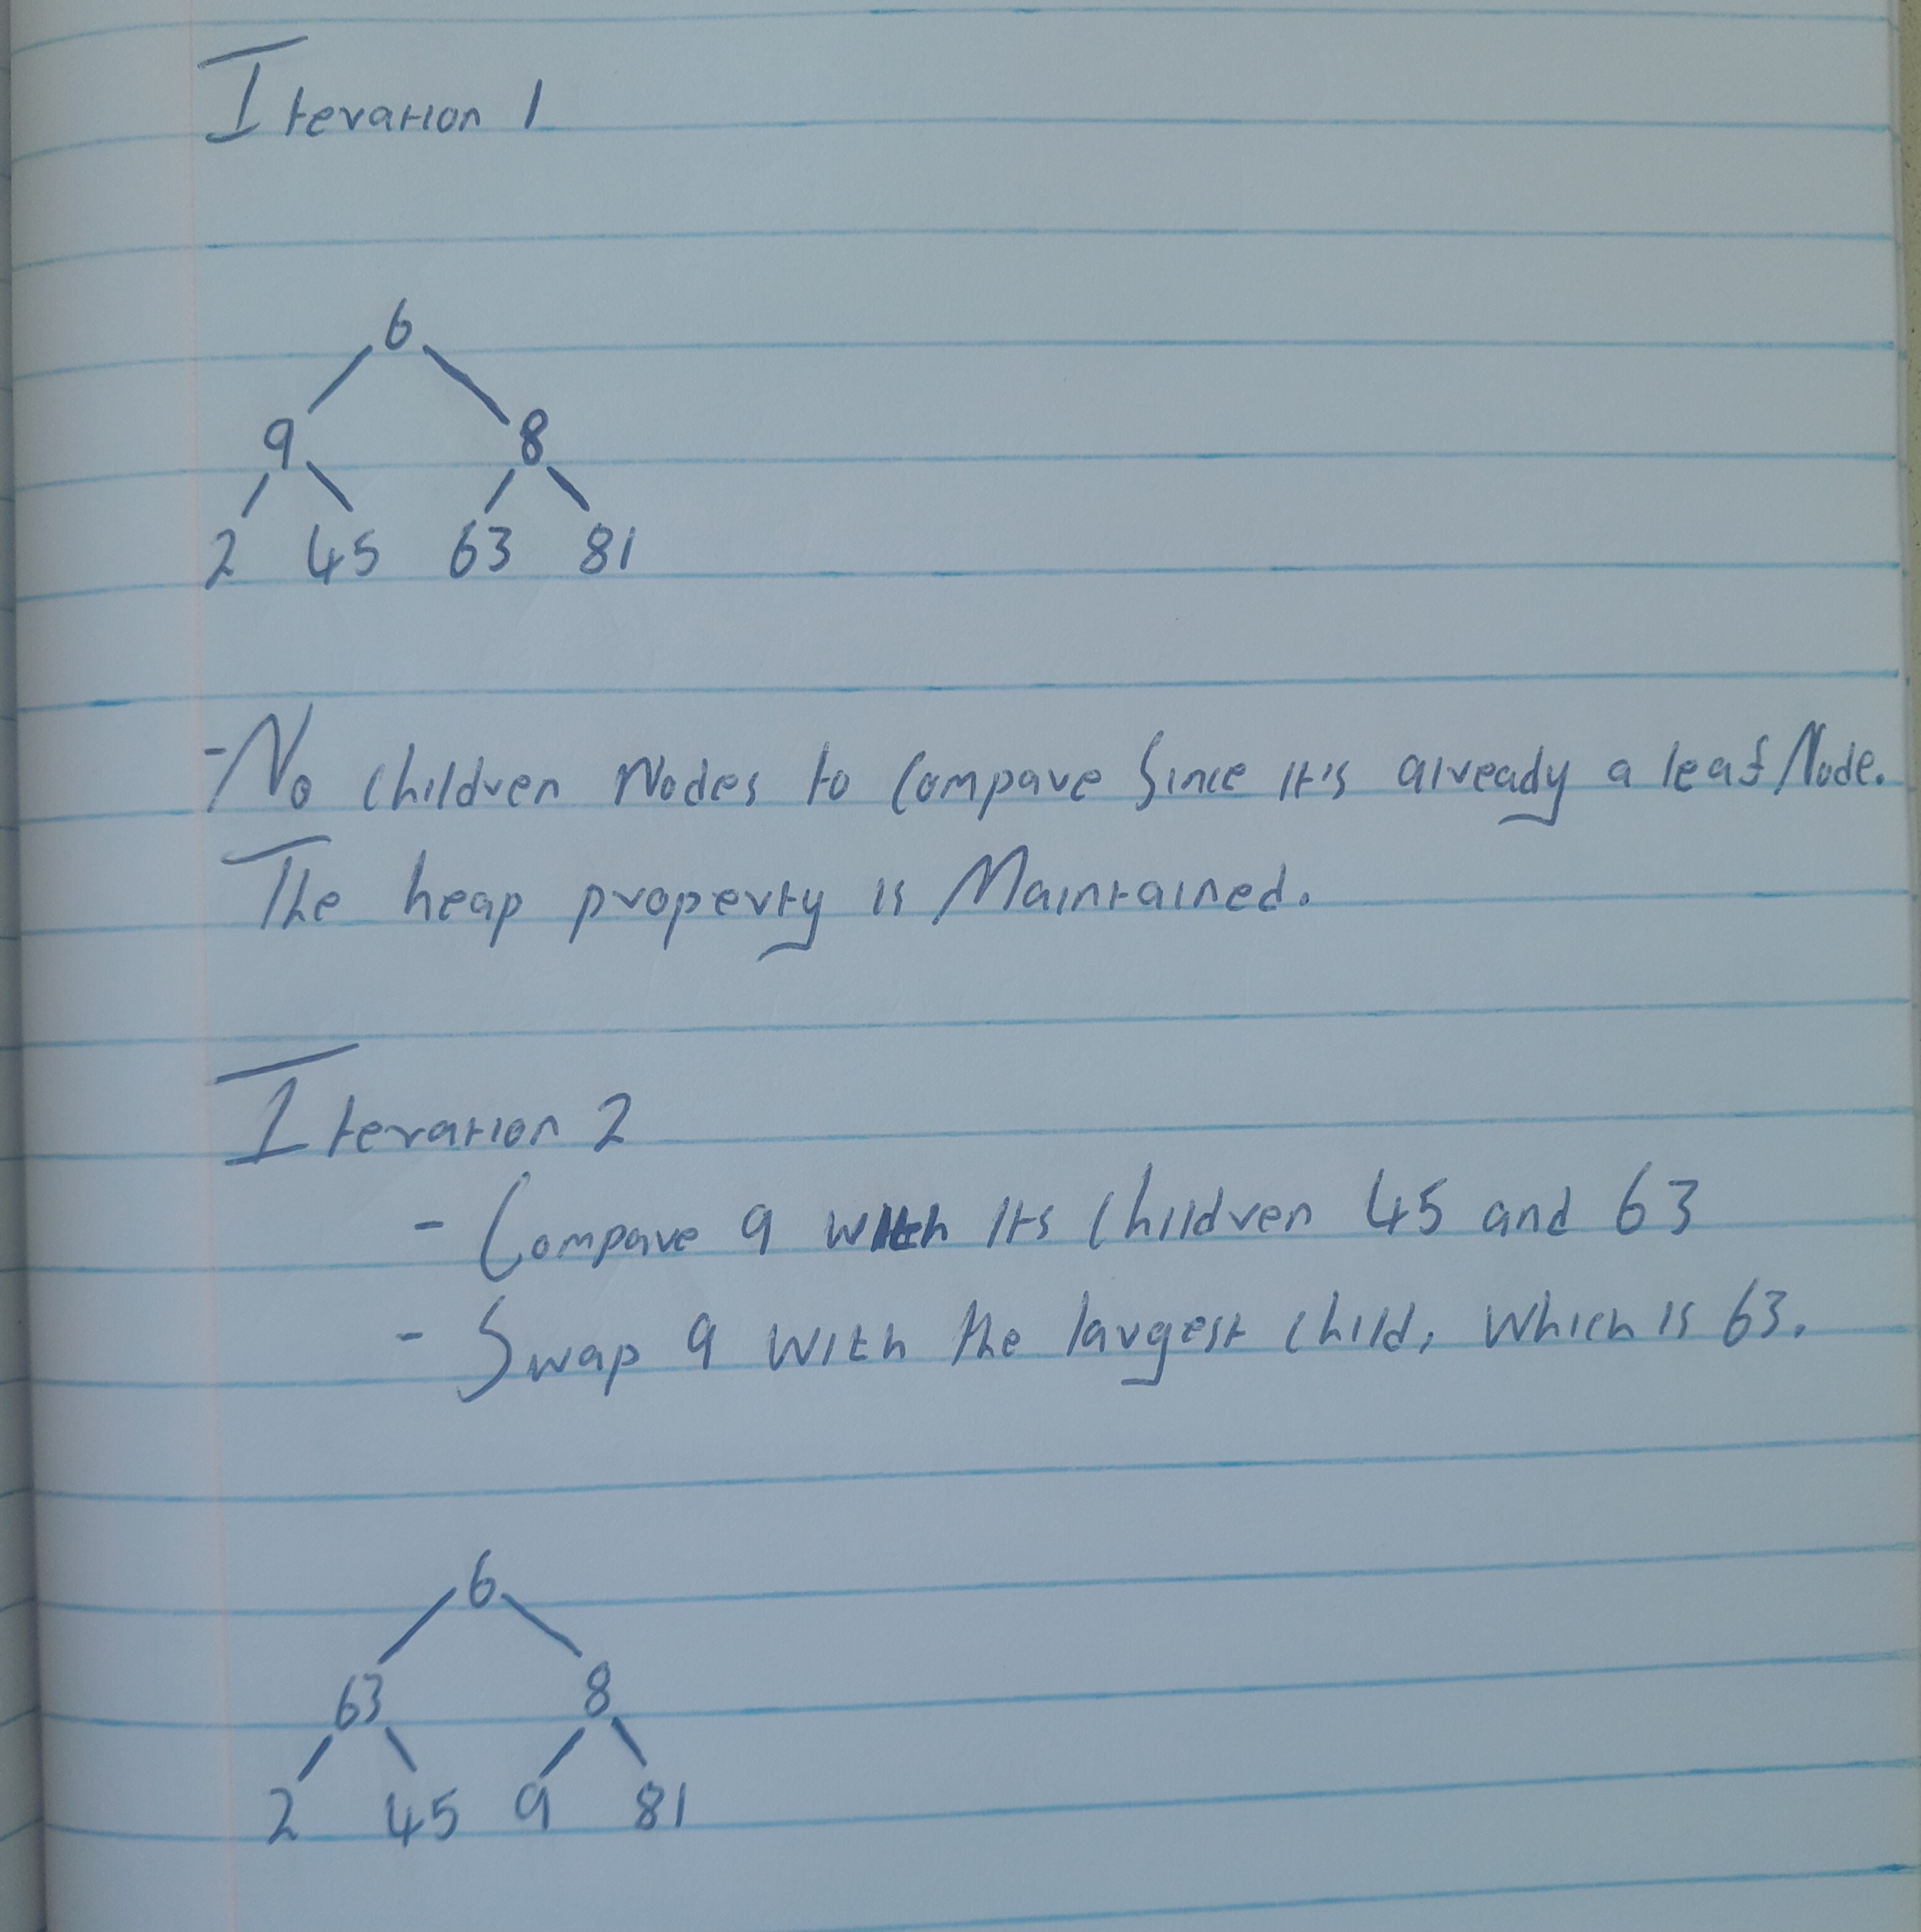 Iteration 1
6
9 8
2 45 63 81
-No children Nodes to Compare Since it's already a leaf Node.
The heap property is Maintained.
Iteration 2
- Compare 9 with its children 45 and 63
- Swap 9 with the largest child, which is 63.
6
63 8
2 45 9 81